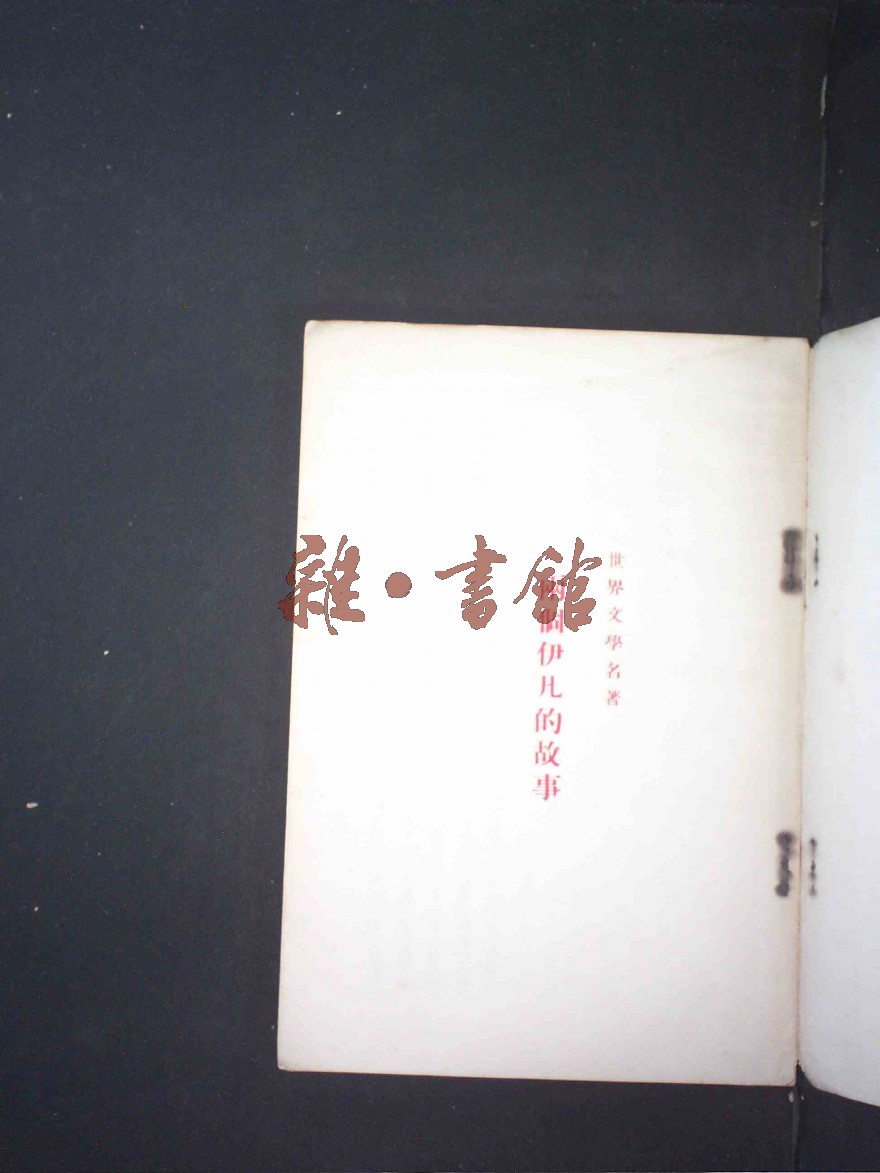 世界文學名著
兩個伊凡的故事
雜·書館